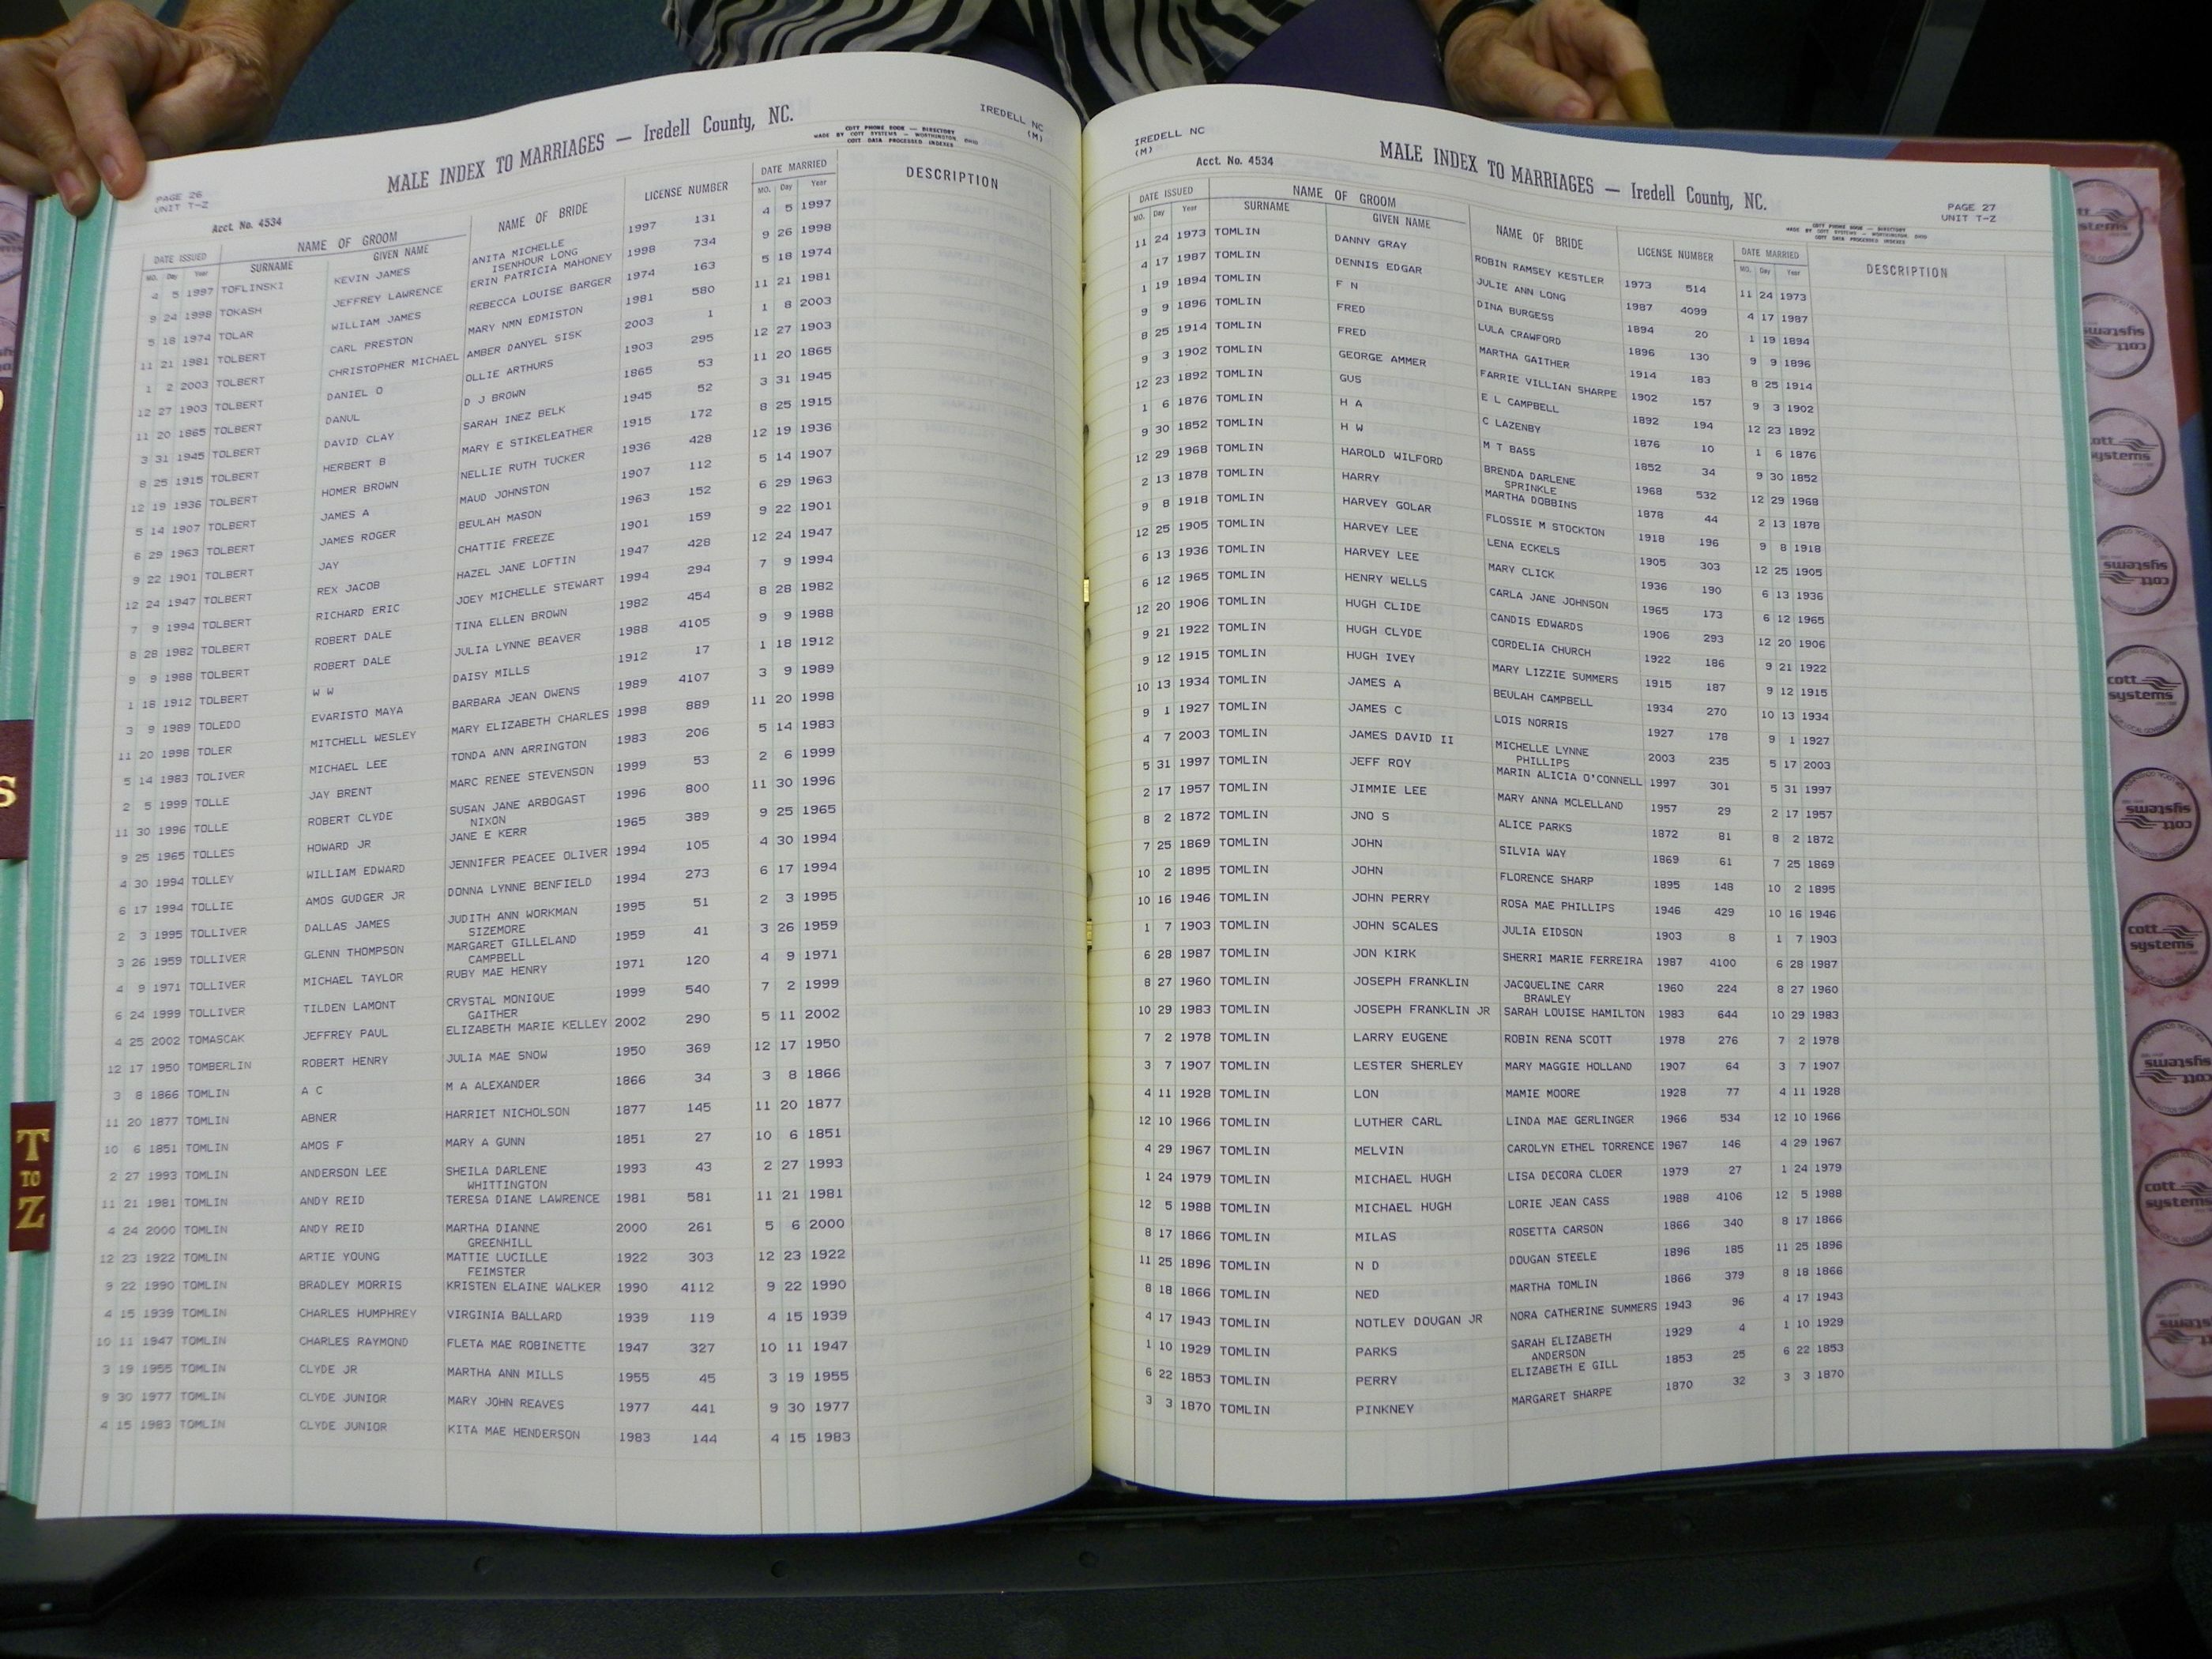 IREDELL NC
(M)
MALE INDEX TO MARRIAGES — Iredell County, NC.
COTT PHONE BOOK — DIRECTORY
MADE BY COTT SYSTEMS — WORTHINGTON, OHIO
COTT DATA PROCESSED INDEXES
PAGE 26
UNIT T-Z
Acct. No. 4534
DATE ISSUED NAME OF GROOM NAME OF BRIDE LICENSE NUMBER DATE MARRIED DESCRIPTION
MO. Day Year SURNAME GIVEN NAME MO. Day Year
4 5 1997 TOFLINSKI KEVIN JAMES ANITA MICHELLE 1997 131 4 5 1997
ISENHOUR LONG
9 24 1998 TOKASH JEFFREY LAWRENCE ERIN PATRICIA MAHONEY 1998 734 9 26 1998
5 18 1974 TOLAR WILLIAM JAMES REBECCA LOUISE BARGER 1974 163 5 18 1974
11 21 1981 TOLBERT CARL PRESTON MARY NMN EDMISTON 1981 580 11 21 1981
1 2 2003 TOLBERT CHRISTOPHER MICHAEL AMBER DANYEL SISK 2003 1 1 8 2003
12 27 1903 TOLBERT DANIEL O OLLIE ARTHURS 1903 295 12 27 1903
11 20 1865 TOLBERT DANUL D J BROWN 1865 53 11 20 1865
3 31 1945 TOLBERT DAVID CLAY SARAH INEZ BELK 1945 52 3 31 1945
8 25 1915 TOLBERT HERBERT B MARY E STIKELEATHER 1915 172 8 25 1915
12 19 1936 TOLBERT HOMER BROWN NELLIE RUTH TUCKER 1936 428 12 19 1936
5 14 1907 TOLBERT JAMES A MAUD JOHNSTON 1907 112 5 14 1907
6 29 1963 TOLBERT JAMES ROGER BEULAH MASON 1963 152 6 29 1963
9 22 1901 TOLBERT JAY CHATTIE FREEZE 1901 159 9 22 1901
12 24 1947 TOLBERT REX JACOB HAZEL JANE LOFTIN 1947 428 12 24 1947
7 9 1994 TOLBERT RICHARD ERIC JOEY MICHELLE STEWART 1994 294 7 9 1994
8 28 1982 TOLBERT ROBERT DALE TINA ELLEN BROWN 1982 454 8 28 1982
9 9 1988 TOLBERT ROBERT DALE JULIA LYNNE BEAVER 1988 4105 9 9 1988
1 18 1912 TOLBERT W W DAISY MILLS 1912 17 1 18 1912
3 9 1989 TOLEDO EVARISTO MAYA BARBARA JEAN OWENS 1989 4107 3 9 1989
11 20 1998 TOLER MITCHELL WESLEY MARY ELIZABETH CHARLES 1998 889 11 20 1998
5 14 1983 TOLIVER MICHAEL LEE TONDA ANN ARRINGTON 1983 206 5 14 1983
2 5 1999 TOLLE JAY BRENT MARC RENEE STEVENSON 1999 53 2 6 1999
11 30 1996 TOLLE ROBERT CLYDE SUSAN JANE ARBOGAST 1996 800 11 30 1996
NIXON
9 25 1965 TOLLES HOWARD JR JANE E KERR 1965 389 9 25 1965
4 30 1994 TOLLEY WILLIAM EDWARD JENNIFER PEACEE OLIVER 1994 105 4 30 1994
6 17 1994 TOLLIE AMOS GUDGER JR DONNA LYNNE BENFIELD 1994 273 6 17 1994
2 3 1995 TOLLIVER DALLAS JAMES JUDITH ANN WORKMAN 1995 51 2 3 1995
SIZEMORE
3 26 1959 TOLLIVER GLENN THOMPSON MARGARET GILLELAND 1959 41 3 26 1959
CAMPBELL
4 9 1971 TOLLIVER MICHAEL TAYLOR RUBY MAE HENRY 1971 120 4 9 1971
6 24 1999 TOLLIVER TILDEN LAMONT CRYSTAL MONIQUE 1999 540 7 2 1999
GAITHER
4 25 2002 TOMASCAK JEFFREY PAUL ELIZABETH MARIE KELLEY 2002 290 5 11 2002
12 17 1950 TOMBERLIN ROBERT HENRY JULIA MAE SNOW 1950 369 12 17 1950
3 8 1866 TOMLIN A C M A ALEXANDER 1866 34 3 8 1866
11 20 1877 TOMLIN ABNER HARRIET NICHOLSON 1877 145 11 20 1877
10 6 1851 TOMLIN AMOS F MARY A GUNN 1851 27 10 6 1851
2 27 1993 TOMLIN ANDERSON LEE SHEILA DARLENE 1993 43 2 27 1993
WHITTINGTON
11 21 1981 TOMLIN ANDY REID TERESA DIANE LAWRENCE 1981 581 11 21 1981
4 24 2000 TOMLIN ANDY REID MARTHA DIANNE 2000 261 5 6 2000
GREENHILL
12 23 1922 TOMLIN ARTIE YOUNG MATTIE LUCILLE 1922 303 12 23 1922
FEIMSTER
9 22 1990 TOMLIN BRADLEY MORRIS KRISTEN ELAINE WALKER 1990 4112 9 22 1990
4 15 1939 TOMLIN CHARLES HUMPHREY VIRGINIA BALLARD 1939 119 4 15 1939
10 11 1947 TOMLIN CHARLES RAYMOND FLETA MAE ROBINETTE 1947 327 10 11 1947
3 19 1955 TOMLIN CLYDE JR MARTHA ANN MILLS 1955 45 3 19 1955
9 30 1977 TOMLIN CLYDE JUNIOR MARY JOHN REAVES 1977 441 9 30 1977
4 15 1983 TOMLIN CLYDE JUNIOR KITA MAE HENDERSON 1983 144 4 15 1983
S
T
TO
Z
IREDELL NC
(M)
Acct. No. 4534
MALE INDEX TO MARRIAGES — Iredell County, NC.
PAGE 27
UNIT T-Z
COTT PHONE BOOK — DIRECTORY
MADE BY COTT SYSTEMS — WORTHINGTON, OHIO
COTT DATA PROCESSED INDEXES
DATE ISSUED NAME OF GROOM NAME OF BRIDE LICENSE NUMBER DATE MARRIED DESCRIPTION
MO. Day Year SURNAME GIVEN NAME MO. Day Year
11 24 1973 TOMLIN DANNY GRAY ROBIN RAMSEY KESTLER 1973 514 11 24 1973
4 17 1987 TOMLIN DENNIS EDGAR JULIE ANN LONG 1987 4099 4 17 1987
1 19 1894 TOMLIN F N DINA BURGESS 1894 20 1 19 1894
9 9 1896 TOMLIN FRED LULA CRAWFORD 1896 130 9 9 1896
8 25 1914 TOMLIN FRED MARTHA GAITHER 1914 183 8 25 1914
9 3 1902 TOMLIN GEORGE AMMER FARRIE VILLIAN SHARPE 1902 157 9 3 1902
12 23 1892 TOMLIN GUS E L CAMPBELL 1892 194 12 23 1892
1 6 1876 TOMLIN H A C LAZENBY 1876 10 1 6 1876
9 30 1852 TOMLIN H W M T BASS 1852 34 9 30 1852
12 29 1968 TOMLIN HAROLD WILFORD BRENDA DARLENE 1968 532 12 29 1968
SPRINKLE
2 13 1878 TOMLIN HARRY MARTHA DOBBINS 1878 44 2 13 1878
9 8 1918 TOMLIN HARVEY GOLAR FLOSSIE M STOCKTON 1918 196 9 8 1918
12 25 1905 TOMLIN HARVEY LEE LENA ECKELS 1905 303 12 25 1905
6 13 1936 TOMLIN HARVEY LEE MARY CLICK 1936 190 6 13 1936
6 12 1965 TOMLIN HENRY WELLS CARLA JANE JOHNSON 1965 173 6 12 1965
12 20 1906 TOMLIN HUGH CLIDE CANDIS EDWARDS 1906 293 12 20 1906
9 21 1922 TOMLIN HUGH CLYDE CORDELIA CHURCH 1922 186 9 21 1922
9 12 1915 TOMLIN HUGH IVEY MARY LIZZIE SUMMERS 1915 187 9 12 1915
10 13 1934 TOMLIN JAMES A BEULAH CAMPBELL 1934 270 10 13 1934
9 1 1927 TOMLIN JAMES C LOIS NORRIS 1927 178 9 1 1927
4 7 2003 TOMLIN JAMES DAVID II MICHELLE LYNNE 2003 235 5 17 2003
PHILLIPS
5 31 1997 TOMLIN JEFF ROY MARIN ALICIA O'CONNELL 1997 301 5 31 1997
2 17 1957 TOMLIN JIMMIE LEE MARY ANNA MCLELLAND 1957 29 2 17 1957
8 2 1872 TOMLIN JNO S ALICE PARKS 1872 81 8 2 1872
7 25 1869 TOMLIN JOHN SILVIA WAY 1869 61 7 25 1869
10 2 1895 TOMLIN JOHN FLORENCE SHARP 1895 148 10 2 1895
10 16 1946 TOMLIN JOHN PERRY ROSA MAE PHILLIPS 1946 429 10 16 1946
1 7 1903 TOMLIN JOHN SCALES JULIA EIDSON 1903 8 1 7 1903
6 28 1987 TOMLIN JON KIRK SHERRI MARIE FERREIRA 1987 4100 6 28 1987
8 27 1960 TOMLIN JOSEPH FRANKLIN JACQUELINE CARR 1960 224 8 27 1960
BRAWLEY
10 29 1983 TOMLIN JOSEPH FRANKLIN JR SARAH LOUISE HAMILTON 1983 644 10 29 1983
7 2 1978 TOMLIN LARRY EUGENE ROBIN RENA SCOTT 1978 276 7 2 1978
3 7 1907 TOMLIN LESTER SHERLEY MARY MAGGIE HOLLAND 1907 64 3 7 1907
4 11 1928 TOMLIN LON MAMIE MOORE 1928 77 4 11 1928
12 10 1966 TOMLIN LUTHER CARL LINDA MAE GERLINGER 1966 534 12 10 1966
4 29 1967 TOMLIN MELVIN CAROLYN ETHEL TORRENCE 1967 146 4 29 1967
1 24 1979 TOMLIN MICHAEL HUGH LISA DECORA CLOER 1979 27 1 24 1979
12 5 1988 TOMLIN MICHAEL HUGH LORIE JEAN CASS 1988 4106 12 5 1988
8 17 1866 TOMLIN MILAS ROSETTA CARSON 1866 340 8 17 1866
11 25 1896 TOMLIN N D DOUGAN STEELE 1896 185 11 25 1896
8 18 1866 TOMLIN NED MARTHA TOMLIN 1866 379 8 18 1866
4 17 1943 TOMLIN NOTLEY DOUGAN JR NORA CATHERINE SUMMERS 1943 96 4 17 1943
1 10 1929 TOMLIN PARKS SARAH ELIZABETH 1929 4 1 10 1929
ANDERSON
6 22 1853 TOMLIN PERRY ELIZABETH E GILL 1853 25 6 22 1853
3 3 1870 TOMLIN PINKNEY MARGARET SHARPE 1870 32 3 3 1870
cott
systems